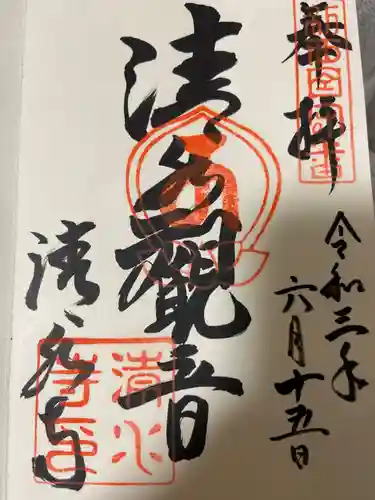 奉拝
令和三年
六月十五日
清水観音
清水寺
清水寺印